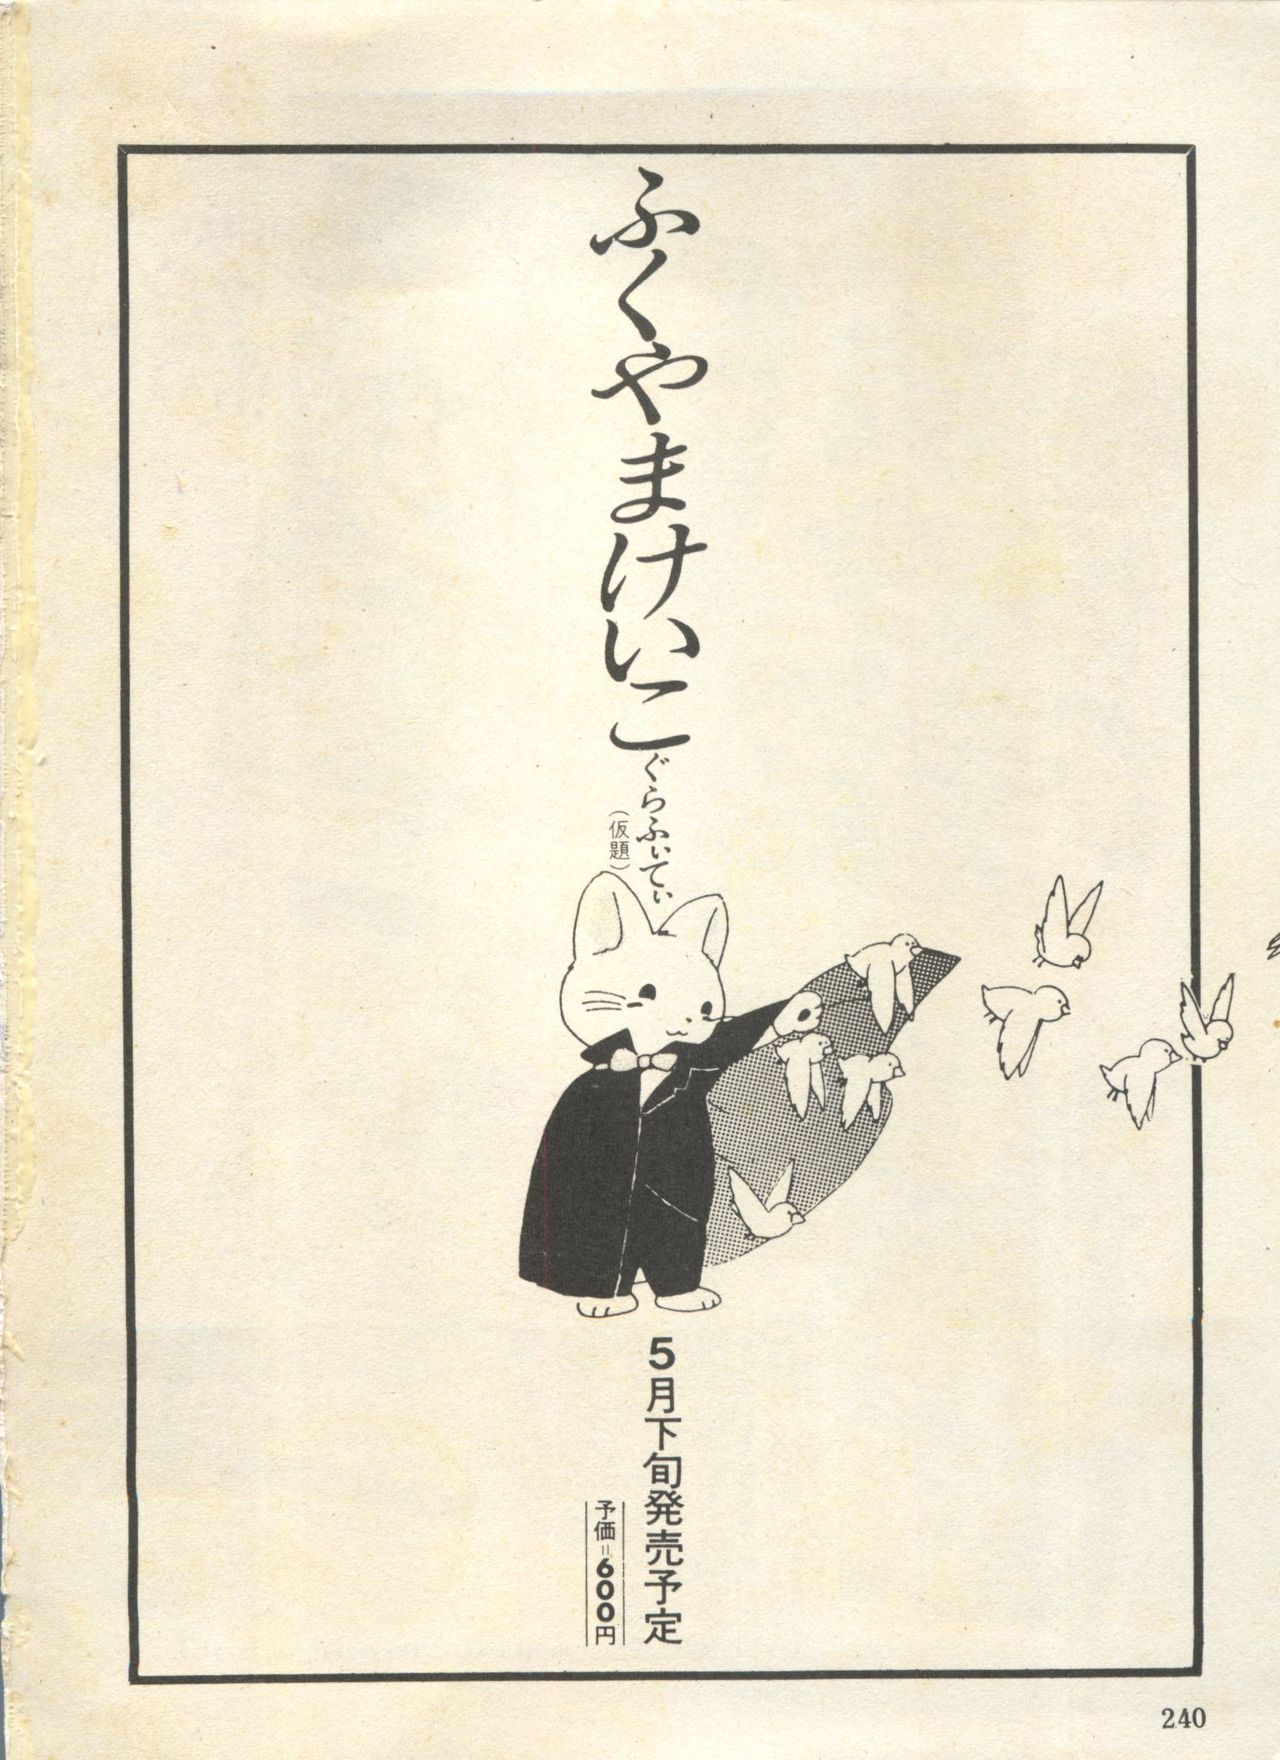 ふくやまけいこ
ぐらふぃてぃ
（仮題）
5月下旬発売予定
予価=600円
240